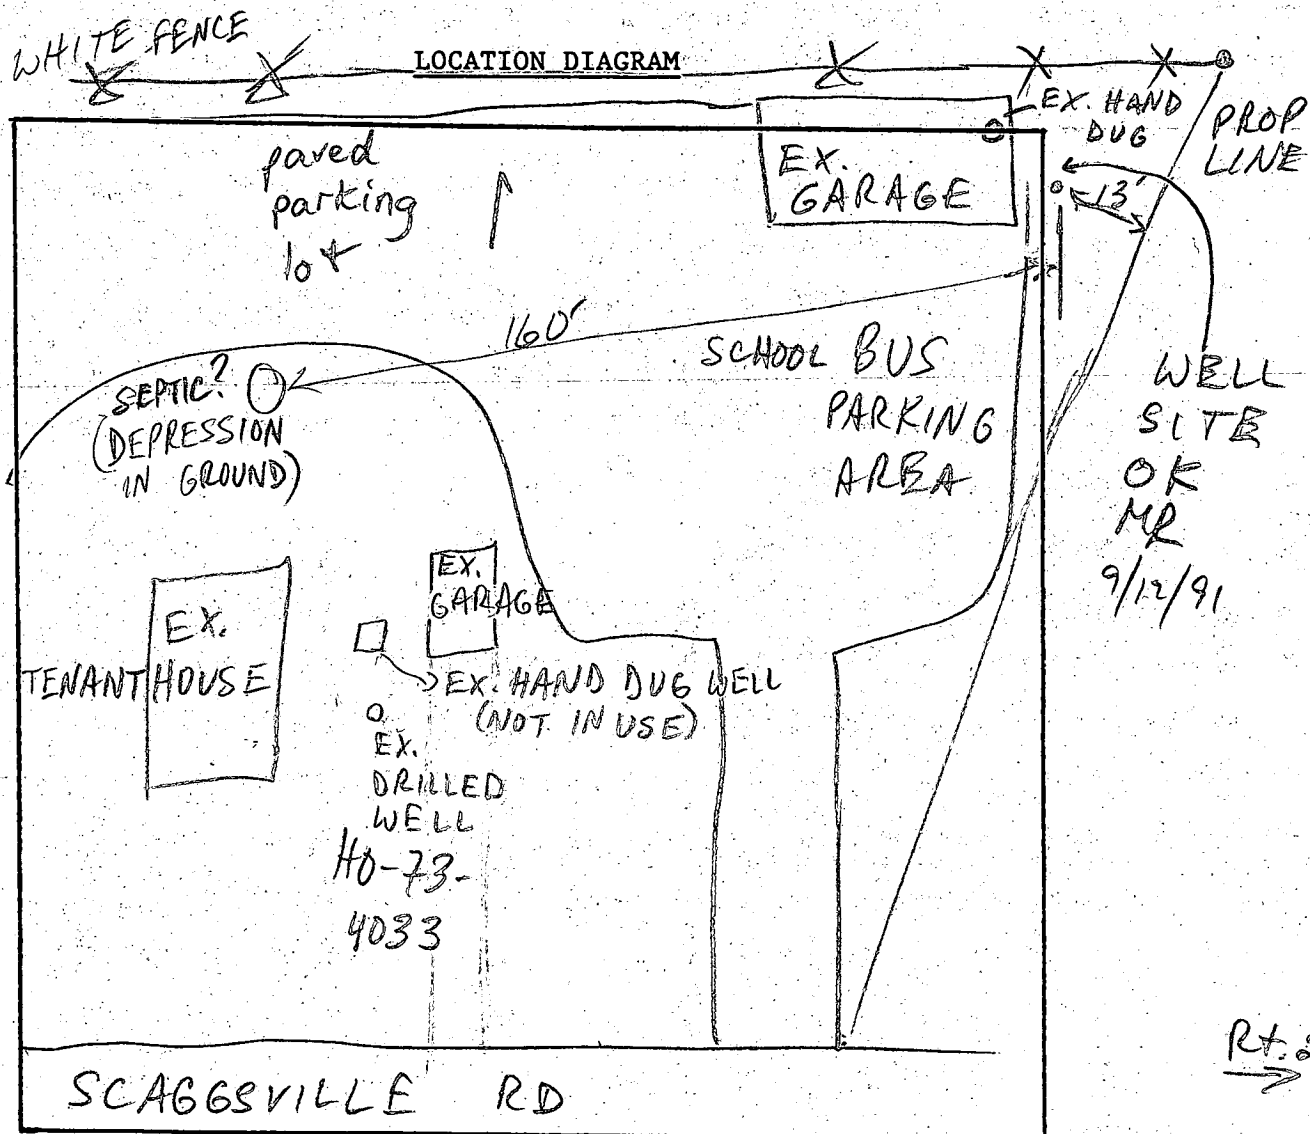 WHITE FENCE
LOCATION DIAGRAM
EX. HAND
DUG
PROP
LINE
paved
parking
lot
EX.
GARAGE
13'
160'
SCHOOL BUS
PARKING
AREA
WELL
SITE
OK
MR
9/12/91
SEPTIC?
(DEPRESSION
IN GROUND)
EX.
GARAGE
EX.
TENANT HOUSE
EX. HAND DUG WELL
(NOT IN USE)
EX.
DRILLED
WELL
HO-73-
4033
Rt.
SCAGGSVILLE RD